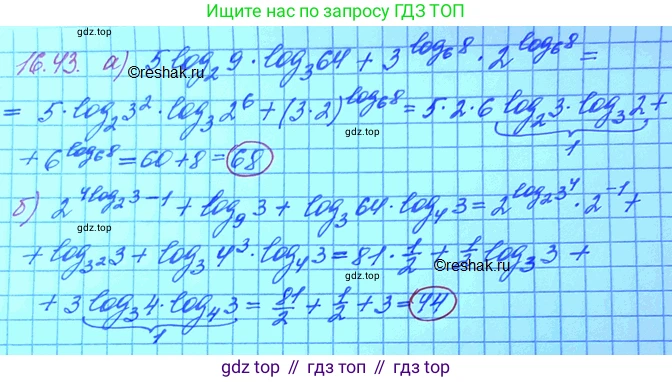 Ищите нас по запросу ГДЗ ТОП
16.43. а) 5·log₂9·log₃64 + 3^(log₆8)·2^(log₆8) =
©reshak.ru
= 5·log₂3²·log₃2⁶ + (3·2)^(log₆8) = 5·2·6 log₂3·log₃2 +
1
gdz.top
+ 6^(log₆8) = 60 + 8 = 68
б) 2^(4log₂3−1) + log₉3 + log₃64·log₄3 = 2^(log₂3⁴)·2⁻¹ +
+ log₃²3 + log₃4³·log₄3 = 81·1/2 + 1/2 log₃3 +
©reshak.ru
+ 3 log₃4·log₄3 = 81/2 + 1/2 + 3 = 44
1
gdz.top
gdz.top // гдз.топ // gdz.top // гдз.топ // gdz.top